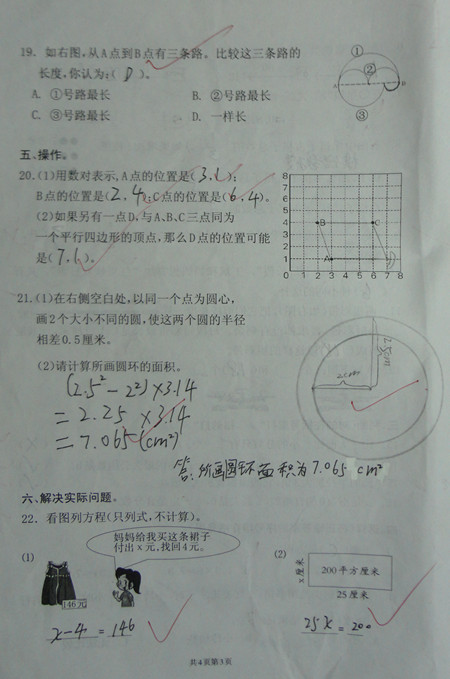 19. 如右图,从A点到B点有三条路。比较这三条路的
长度,你认为:( D )。
A. ①号路最长 B. ②号路最长
C. ③号路最长 D. 一样长
① ② ③ A B
五、操作。
20. (1)用数对表示,A点的位置是(3,1);
B点的位置是(2,4);C点的位置是(6,4)。
(2)如果另有一点D,与A、B、C三点同为
一个平行四边形的顶点,那么D点的位置可能
是(7,1)。
8
7
6
5
4 B C
3
2
1 A D
0 1 2 3 4 5 6 7 8
21. (1)在右侧空白处,以同一个点为圆心,
画2个大小不同的圆,使这两个圆的半径
相差0.5厘米。
2.5cm
2cm
(2)请计算所画圆环的面积。
(2.5²-2²)×3.14
=2.25×3.14
=7.065(cm²)
答:所画圆环面积为7.065 cm²
六、解决实际问题。
22. 看图列方程(只列式,不计算)。
(1) 妈妈给我买这条裙子
付出x元,找回4元。
146元
x-4=146
(2) 200平方厘米
x厘米
25厘米
25x=200
共4页第3页